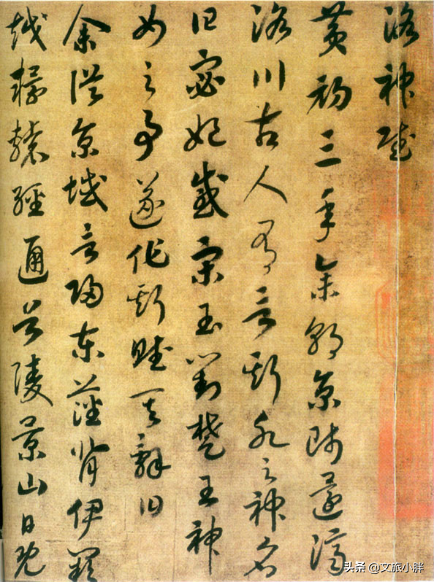 洛神賦
黄初三年余朝京師還濟
洛川古人有言斯水之神名
曰宓妃感宋玉對楚王神
女之事遂作斯賦其辭曰
余從京域言歸東藩背伊闕
越轘轅經通谷陵景山日既
头条 @文旅小胖